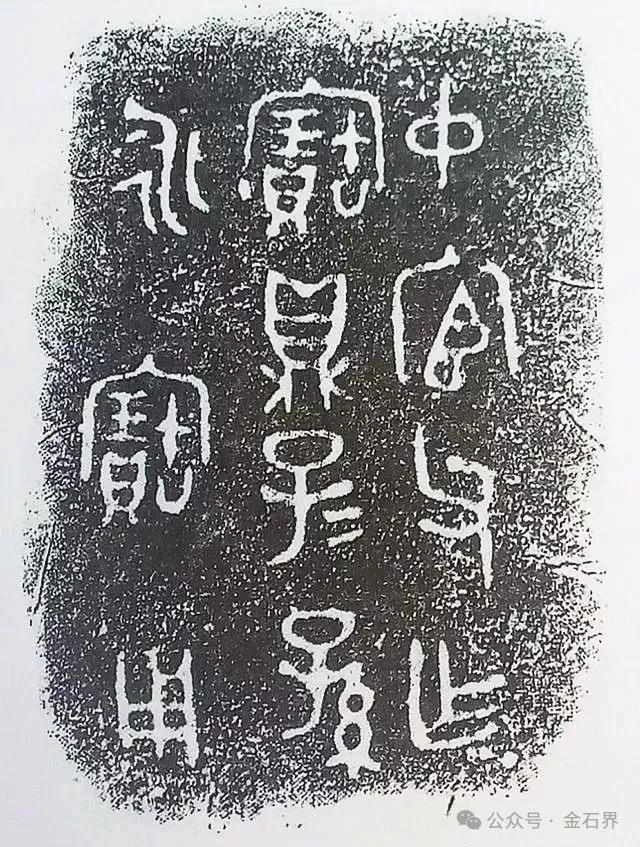 中宦父作
寶鼎子=孫
永寶用
公众号 · 金石界